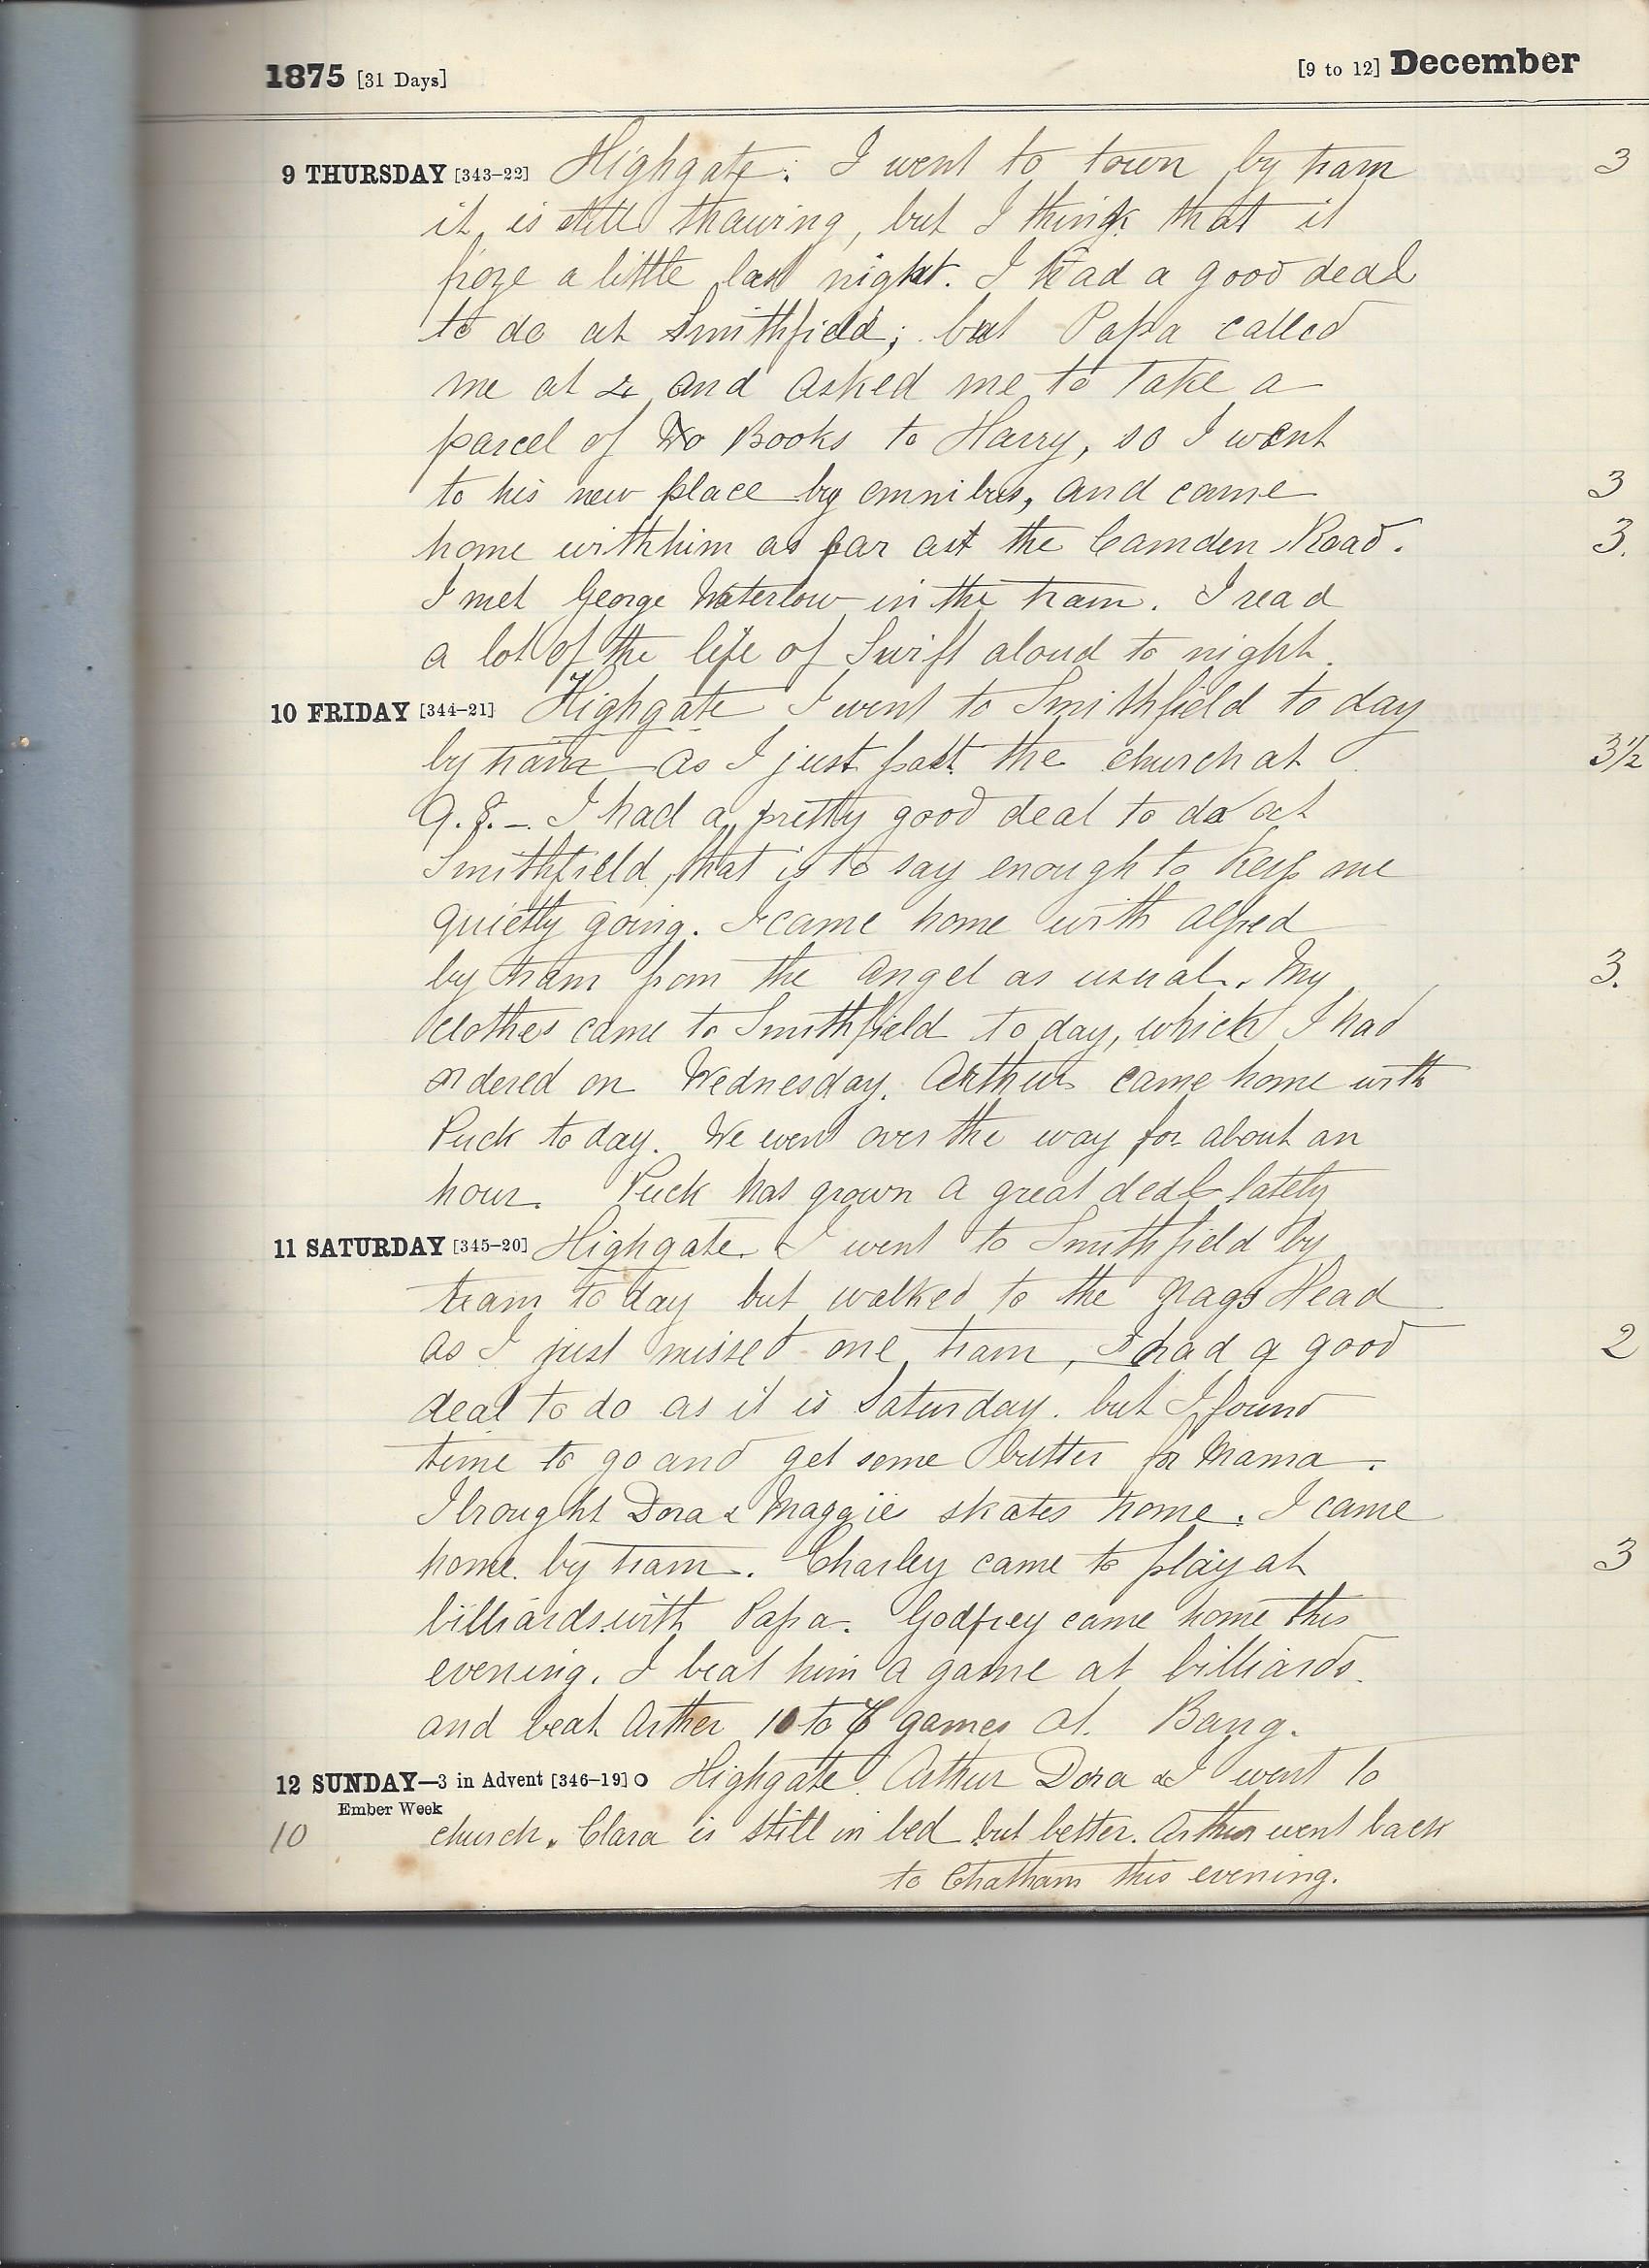 1875 [31 Days] [9 to 12] December
9 THURSDAY [343-22] Highgate. I went to town by tram 3
it is still thawing, but I think that it
froze a little last night. I had a good deal
to do at Smithfield; but Papa called
me at 4 and asked me to take a
parcel of Books to Harry, so I went
to his new place by omnibus, and came 3
home with him as far as the Camden Road. 3.
I met George Waterlow in the tram. I read
a lot of the life of Swift aloud to night.
10 FRIDAY [344-21] Highgate I went to Smithfield to day
by train as I just past the church at 3½
9.8. - I had a pretty good deal to do at
Smithfield, that is to say enough to keep me
quietly going. I came home with Alfred
by tram from the Angel as usual. My 3.
clothes came to Smithfield to day, which I had
ordered on Wednesday. Arthur came home with
Puck to day. We went over the way for about an
hour. Puck has grown a great deal lately
11 SATURDAY [345-20] Highgate. I went to Smithfield by
tram to day but walked to the Nags Head
as I just missed one tram, I had a good 2
deal to do as it is Saturday. but I found
time to go and get some butter for Mama.
I brought Dora & Maggie skates home. I came
home by tram. Charley came to play at 3
billiards with Papa. Godfrey came home this
evening. I beat him a game at billiards.
and beat Arther 10 to games at Bang.
12 SUNDAY—3 in Advent [346-19] O Highgate Arthur Dora & I went to
Ember Week
10 church. Clara is still in bed but better. Arthur went back
to Chatham this evening.